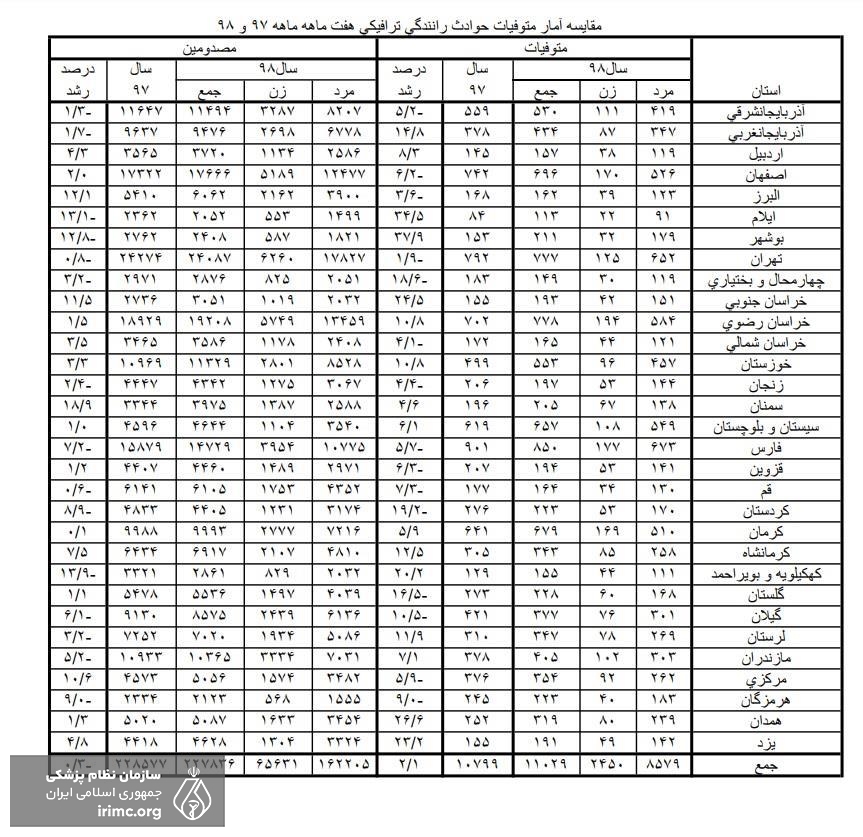 مقايسه آمار متوفيات حوادث رانندگي ترافيكي هفت ماهه ماهه ۹۷ و ۹۸
استان متوفيات مصدومين
سال۹۸ سال ۹۷ درصد رشد سال۹۸ سال ۹۷ درصد رشد
مرد زن جمع مرد زن جمع
آذربايجانشرقي ۴۱۹ ۱۱۱ ۵۳۰ ۵۵۹ -۵/۲ ۸۲۰۷ ۳۲۸۷ ۱۱۴۹۴ ۱۱۶۴۷ -۱/۳
آذربايجانغربي ۳۴۷ ۸۷ ۴۳۴ ۳۷۸ ۱۴/۸ ۶۷۷۸ ۲۶۹۸ ۹۴۷۶ ۹۶۳۷ -۱/۷
اردبيل ۱۱۹ ۳۸ ۱۵۷ ۱۴۵ ۸/۳ ۲۵۸۶ ۱۱۳۴ ۳۷۲۰ ۳۵۶۵ ۴/۳
اصفهان ۵۲۶ ۱۷۰ ۶۹۶ ۷۴۲ -۶/۲ ۱۲۴۷۷ ۵۱۸۹ ۱۷۶۶۶ ۱۷۳۲۲ ۲/۰
البرز ۱۲۳ ۳۹ ۱۶۲ ۱۶۸ -۳/۶ ۳۹۰۰ ۲۱۶۲ ۶۰۶۲ ۵۴۱۰ ۱۲/۱
ايلام ۹۱ ۲۲ ۱۱۳ ۸۴ ۳۴/۵ ۱۴۹۹ ۵۵۳ ۲۰۵۲ ۲۳۶۲ -۱۳/۱
بوشهر ۱۷۹ ۳۲ ۲۱۱ ۱۵۳ ۳۷/۹ ۱۸۲۱ ۵۸۷ ۲۴۰۸ ۲۷۶۲ -۱۲/۸
تهران ۶۵۲ ۱۲۵ ۷۷۷ ۷۹۲ -۱/۹ ۱۷۸۲۷ ۶۲۶۰ ۲۴۰۸۷ ۲۴۲۷۴ -۰/۸
چهارمحال و بختياري ۱۱۹ ۳۰ ۱۴۹ ۱۸۳ -۱۸/۶ ۲۰۵۱ ۸۲۵ ۲۸۷۶ ۲۹۷۱ -۳/۲
خراسان جنوبي ۱۵۱ ۴۲ ۱۹۳ ۱۵۵ ۲۴/۵ ۲۰۳۲ ۱۰۱۹ ۳۰۵۱ ۲۷۳۶ ۱۱/۵
خراسان رضوي ۵۸۴ ۱۹۴ ۷۷۸ ۷۰۲ ۱۰/۸ ۱۳۴۵۹ ۵۷۴۹ ۱۹۲۰۸ ۱۸۹۲۹ ۱/۵
خراسان شمالي ۱۲۱ ۴۴ ۱۶۵ ۱۷۲ -۴/۱ ۲۴۰۸ ۱۱۷۸ ۳۵۸۶ ۳۴۶۵ ۳/۵
خوزستان ۴۵۷ ۹۶ ۵۵۳ ۴۹۹ ۱۰/۸ ۸۵۲۸ ۲۸۰۱ ۱۱۳۲۹ ۱۰۹۶۹ ۳/۳
زنجان ۱۴۴ ۵۳ ۱۹۷ ۲۰۶ -۴/۴ ۳۰۶۷ ۱۲۷۵ ۴۳۴۲ ۴۴۴۷ -۲/۴
سمنان ۱۳۸ ۶۷ ۲۰۵ ۱۹۶ ۴/۶ ۲۵۸۸ ۱۳۸۷ ۳۹۷۵ ۳۳۴۴ ۱۸/۹
سيستان و بلوچستان ۵۴۹ ۱۰۸ ۶۵۷ ۶۱۹ ۶/۱ ۳۵۴۰ ۱۱۰۴ ۴۶۴۴ ۴۵۹۶ ۱/۰
فارس ۶۷۳ ۱۷۷ ۸۵۰ ۹۰۱ -۵/۷ ۱۰۷۷۵ ۳۹۵۴ ۱۴۷۲۹ ۱۵۸۷۹ -۷/۲
قزوين ۱۴۱ ۵۳ ۱۹۴ ۲۰۷ -۶/۳ ۲۹۷۱ ۱۴۸۹ ۴۴۶۰ ۴۴۰۷ ۱/۲
قم ۱۳۰ ۳۴ ۱۶۴ ۱۷۷ -۷/۳ ۴۳۵۲ ۱۷۵۳ ۶۱۰۵ ۶۱۴۱ -۰/۶
كردستان ۱۷۰ ۵۳ ۲۲۳ ۲۷۶ -۱۹/۲ ۳۱۷۴ ۱۲۳۱ ۴۴۰۵ ۴۸۳۳ -۸/۹
كرمان ۵۱۰ ۱۶۹ ۶۷۹ ۶۴۱ ۵/۹ ۷۲۱۶ ۲۷۷۷ ۹۹۹۳ ۹۹۸۸ ۰/۱
كرمانشاه ۲۵۸ ۸۵ ۳۴۳ ۳۰۵ ۱۲/۵ ۴۸۱۰ ۲۱۰۷ ۶۹۱۷ ۶۴۳۴ ۷/۵
كهكيلويه و بويراحمد ۱۱۱ ۴۴ ۱۵۵ ۱۲۹ ۲۰/۲ ۲۰۳۲ ۸۲۹ ۲۸۶۱ ۳۳۲۱ -۱۳/۹
گلستان ۱۶۸ ۶۰ ۲۲۸ ۲۷۳ -۱۶/۵ ۴۰۳۹ ۱۴۹۷ ۵۵۳۶ ۵۴۷۸ ۱/۱
گيلان ۳۰۱ ۷۶ ۳۷۷ ۴۲۱ -۱۰/۵ ۶۱۳۶ ۲۴۳۹ ۸۵۷۵ ۹۱۳۰ -۶/۱
لرستان ۲۶۹ ۷۸ ۳۴۷ ۳۱۰ ۱۱/۹ ۵۰۸۶ ۱۹۳۴ ۷۰۲۰ ۷۲۵۲ -۳/۲
مازندران ۳۰۳ ۱۰۲ ۴۰۵ ۳۷۸ ۷/۱ ۷۰۳۱ ۳۳۳۴ ۱۰۳۶۵ ۱۰۹۳۳ -۵/۲
مركزي ۲۶۲ ۹۲ ۳۵۴ ۳۷۶ -۵/۹ ۳۴۸۲ ۱۵۷۴ ۵۰۵۶ ۴۵۷۳ ۱۰/۶
هرمزگان ۱۸۳ ۴۰ ۲۲۳ ۲۴۵ -۹/۰ ۱۵۵۵ ۵۶۸ ۲۱۲۳ ۲۳۳۴ -۹/۰
همدان ۲۳۹ ۸۰ ۳۱۹ ۲۵۲ ۲۶/۶ ۳۴۵۴ ۱۶۳۳ ۵۰۸۷ ۵۰۲۰ ۱/۳
يزد ۱۴۲ ۴۹ ۱۹۱ ۱۵۵ ۲۳/۲ ۳۳۲۴ ۱۳۰۴ ۴۶۲۸ ۴۴۱۸ ۴/۸
جمع ۸۵۷۹ ۲۴۵۰ ۱۱۰۲۹ ۱۰۷۹۹ ۲/۱ ۱۶۲۲۰۵ ۶۵۶۳۱ ۲۲۷۸۳۶ ۲۲۸۵۷۷ -۰/۳
سازمان نظام پزشکی
جمهوری اسلامی ایران
irimc.org